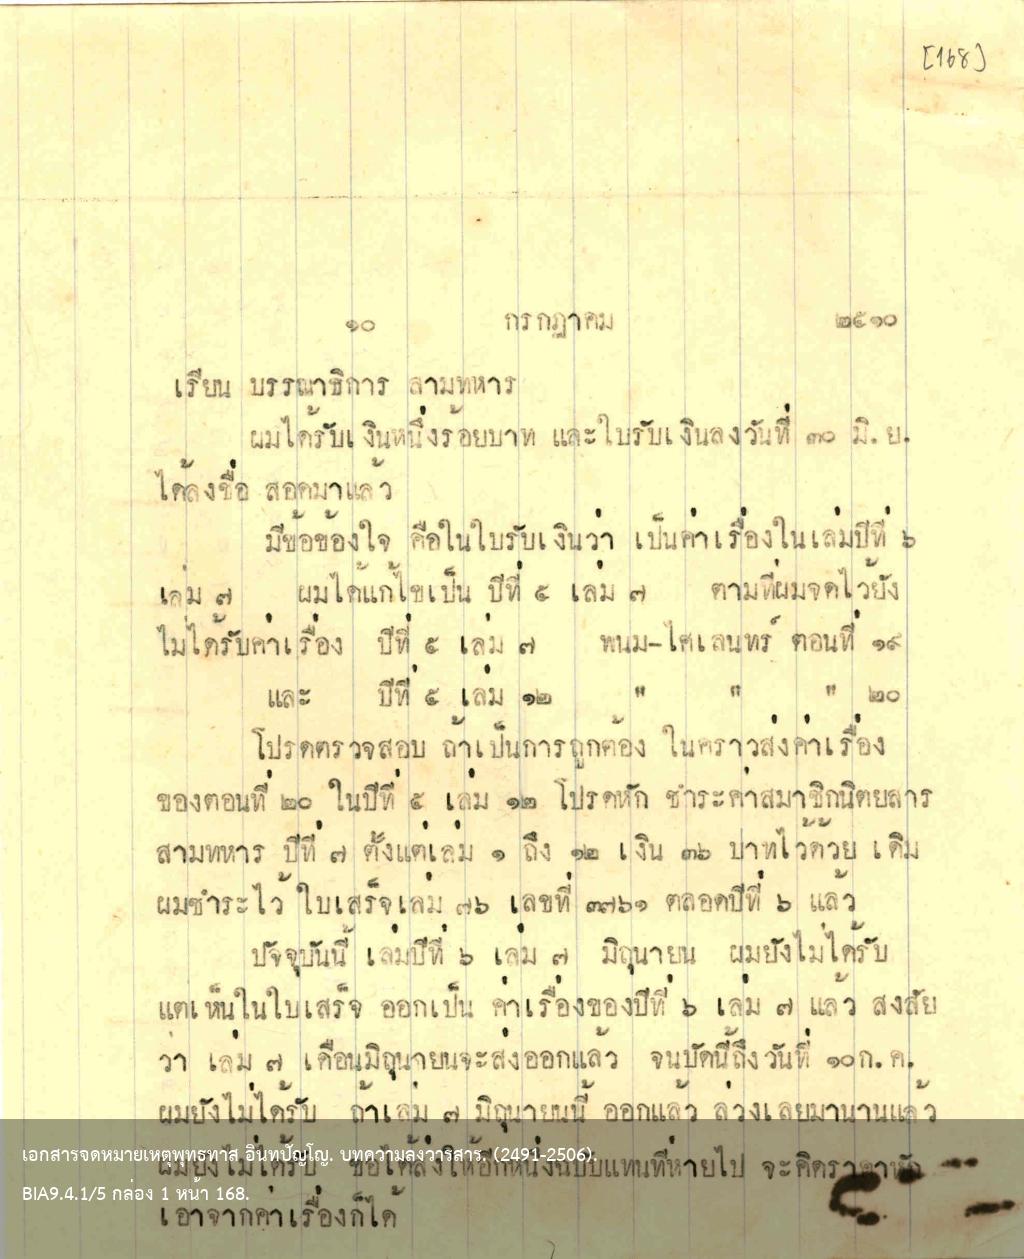 [168]
๑๐ กรกฎาคม ๒๕๑๐
เรียน บรรณาธิการ สามทหาร
ผมได้รับเงินหนึ่งร้อยบาท และใบรับเงินลงวันที่ ๓๐ มิ.ย.
ได้ลงชื่อ สอดมาแล้ว
มีข้อข้องใจ คือในใบรับเงินว่า เป็นค่าเรื่องในเล่มปีที่ ๖
เล่ม ๗ ผมได้แก้ไขเป็น ปีที่ ๕ เล่ม ๗ ตามที่ผมจดไว้ยัง
ไม่ได้รับค่าเรื่อง ปีที่ ๕ เล่ม ๗ พนม-ไศเลนทร์ ตอนที่ ๑๙
และ ปีที่ ๕ เล่ม ๑๒ " " " ๒๐
โปรดตรวจสอบ ถ้าเป็นการถูกต้อง ในคราวส่งค่าเรื่อง
ของตอนที่ ๒๐ ในปีที่ ๕ เล่ม ๑๒ โปรดหัก ชำระค่าสมาชิกนิตยสาร
สามทหาร ปีที่ ๗ ตั้งแต่เล่ม ๑ ถึง ๑๒ เงิน ๓๖ บาทไว้ด้วย เดิม
ผมชำระไว้ ใบเสร็จเล่ม ๗๖ เลขที่ ๓๗๖๑ ตลอดปีที่ ๖ แล้ว
ปัจจุบันนี้ เล่มปีที่ ๖ เล่ม ๗ มิถุนายน ผมยังไม่ได้รับ
แต่เห็นในใบเสร็จ ออกเป็น ค่าเรื่องของปีที่ ๖ เล่ม ๗ แล้ว สงสัย
ว่า เล่ม ๗ เดือนมิถุนายนจะส่งออกแล้ว จนบัดนี้ถึงวันที่ ๑๐ก.ค.
ผมยังไม่ได้รับ ถ้าเล่ม ๗ มิถุนายนนี้ ออกแล้ว ล่วงเลยมานานแล้ว
ผมยังไม่ได้รับ ขอได้ส่งให้อีกหนึ่งฉบับแทนที่หายไป จะคิดราคาหัก
เอาจากค่าเรื่องก็ได้
เอกสารจดหมายเหตุพุทธทาส อินทปัญโญ. บทความลงวารสาร. (2491-2506).
BIA9.4.1/5 กล่อง 1 หน้า 168.